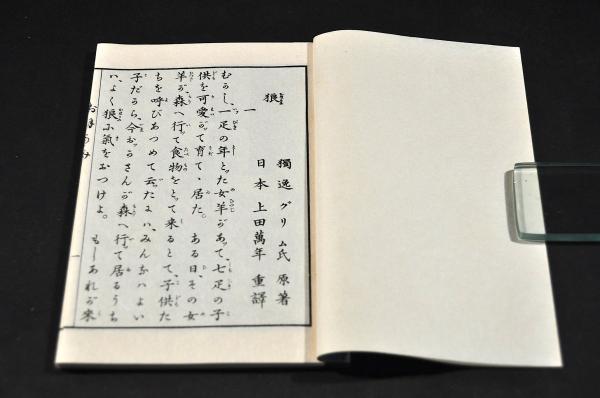 狼
一
獨逸 グリム氏 原著
日本 上田萬年 重譯
むかし、一疋の年とった女羊があって、七疋の子
供を可愛がって育て、居た。ある日、その女
羊が森へ行って食物をとって来るとて、子供た
ちを呼びあつめて云たよハみんなハよい
子だから、今おっかさんが森へ行って居るうち
ハ、よく狼に氣をおつけよ。もしあれが来
おほかみ